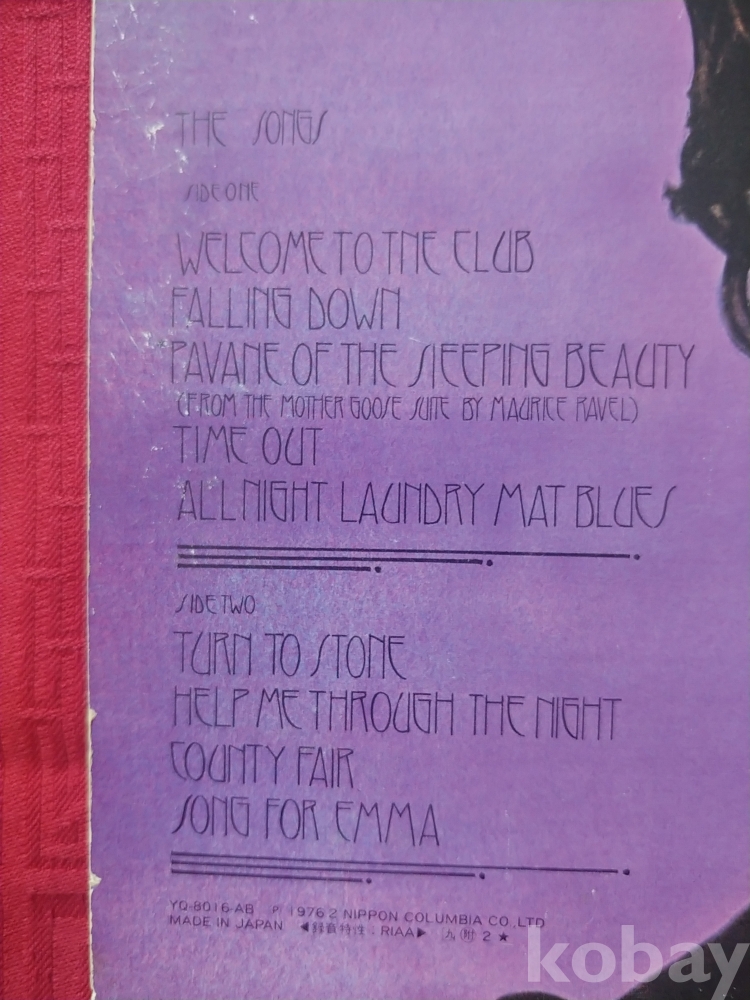 THE SONGS
SIDE ONE
WELCOME TO THE CLUB
FALLING DOWN
PAVANE OF THE SLEEPING BEAUTY
(FROM THE MOTHER GOOSE SUITE BY MAURICE RAVEL)
TIME OUT
ALL NIGHT LAUNDRY MAT BLUES
SIDE TWO
TURN TO STONE
HELP ME THROUGH THE NIGHT
COUNTY FAIR
SONG FOR EMMA
YQ-8016-AB ℗ 1976 2 NIPPON COLUMBIA CO., LTD
MADE IN JAPAN ◀録音特性：RIAA▶ 九 ㈱ 2 ★
kobay